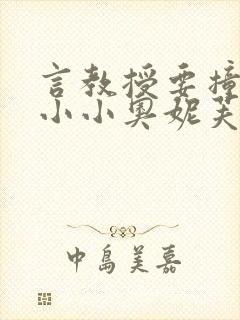 言教授要撞
小小奥妮芙
中島美嘉